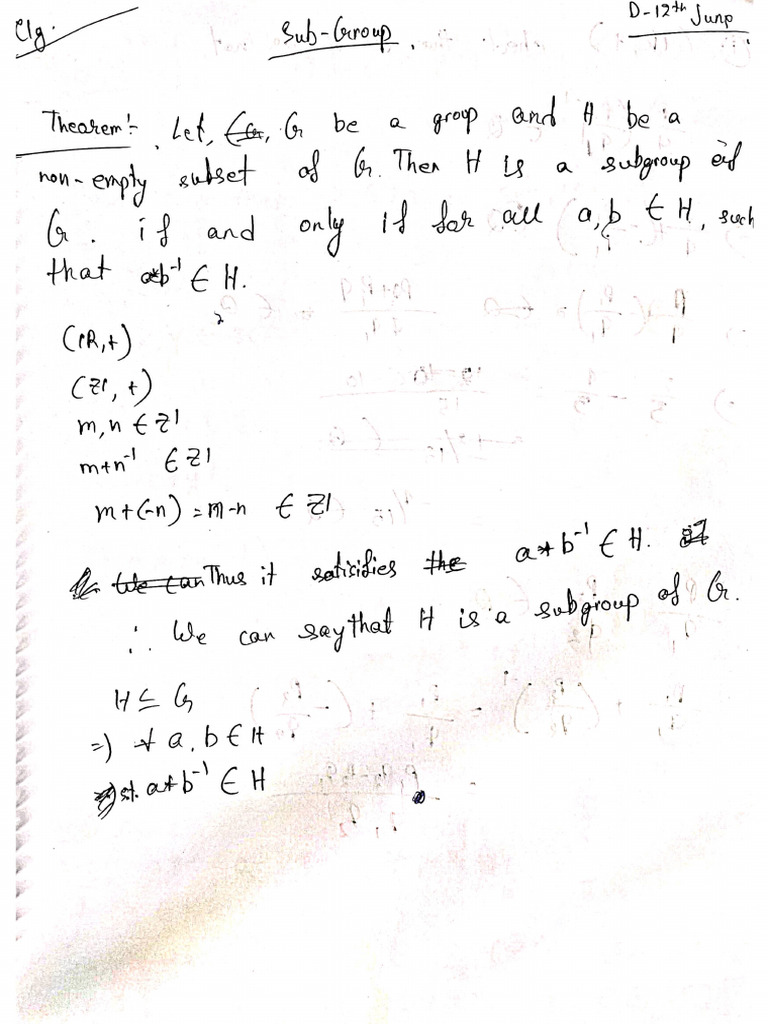 Clg.
Sub-Group.
D-12th June
Theorem:- Let, G be a group and H be a
non-empty subset of G. Then H is a subgroup of
G. if and only if for all a, b ∈ H, such
that a*b⁻¹ ∈ H.
(IR, +)
(Z, +)
m, n ∈ Z
m+n⁻¹ ∈ Z
m+(-n) = m-n ∈ Z
Thus it saticifies a*b⁻¹ ∈ H.
∴ We can say that H is a subgroup of G.
H ≤ G
=) ∀ a, b ∈ H
st. a*b⁻¹ ∈ H